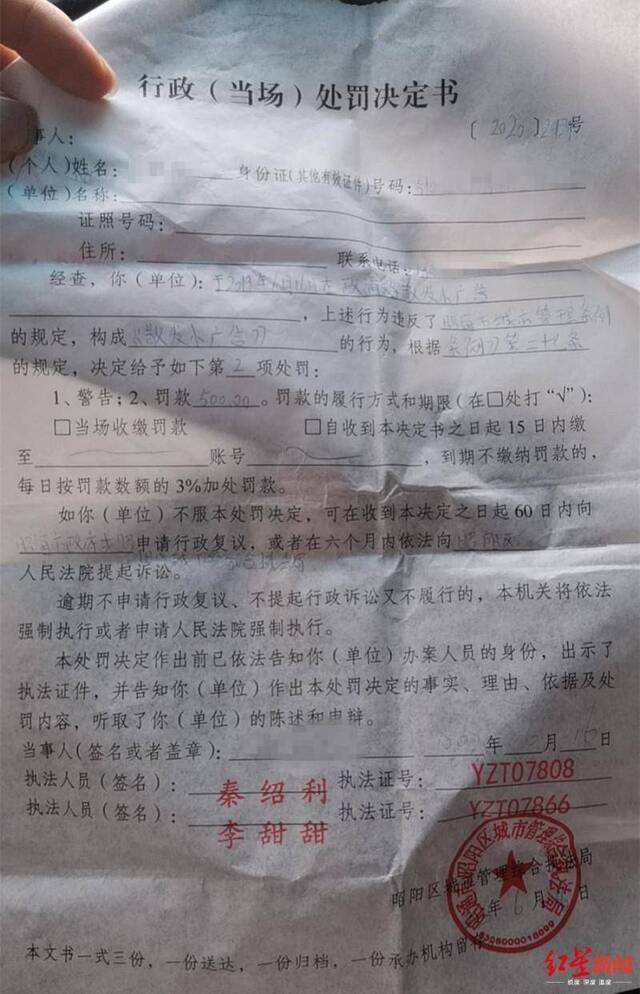 行政（当场）处罚决定书
〔2020〕 号
事人：
（个人）姓名： 身份证（其他有效证件）号码：
（单位）名称：
证照号码：
住所： 联系电话：
经查，你（单位）： 散发小广告
，上述行为违反了昭通市城市管理条例
的规定，构成《散发小广告》的行为，根据条例》第三十 条
的规定，决定给予如下第2项处罚：
1、警告；2、罚款500.00。罚款的履行方式和期限（在□处打“√”）：
□当场收缴罚款 □自收到本决定书之日起15日内缴
至 账号 ，到期不缴纳罚款的，
每日按罚款数额的3%加处罚款。
如你（单位）不服本处罚决定，可在收到本决定之日起60日内向
申请行政复议，或者在六个月内依法向昭阳区
人民法院提起诉讼。
逾期不申请行政复议、不提起行政诉讼又不履行的，本机关将依法
强制执行或者申请人民法院强制执行。
本处罚决定作出前已依法告知你（单位）办案人员的身份，出示了
执法证件，并告知你（单位）作出本处罚决定的事实、理由、依据及处
罚内容，听取了你（单位）的陈述和申辩。
当事人（签名或者盖章）： 年 月 日
执法人员（签名）：秦绍利 执法证号：YZT07808
执法人员（签名）：李甜甜 执法证号：YZT07866
昭阳区城市管理综合执法局
年6月 日
昭通市昭阳区城市管理综合执法局
本文书一式三份，一份送达，一份归档，一份承办机构留存
红星新闻
锐度 深度 温度